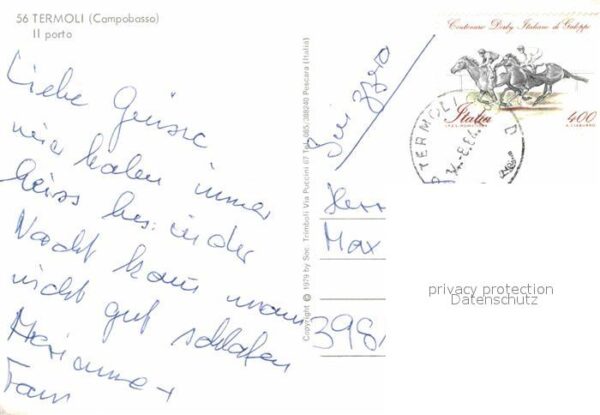 56 TERMOLI (Campobasso)
Il porto
Liebe Grüsse
wir haben immer
heiss bes: in der
Nacht kann man
nicht gut schlafen
Marianne +
Fam
Copyright © 1979 by Soc. Trimboli Via Puccini 67 Tel. 085/388240 Pescara (Italia)
Svizzera
Centenario Derby Italiano di Galoppo
Italia
400
TERMOLI
Herr
Max
398
privacy protection
Datenschutz